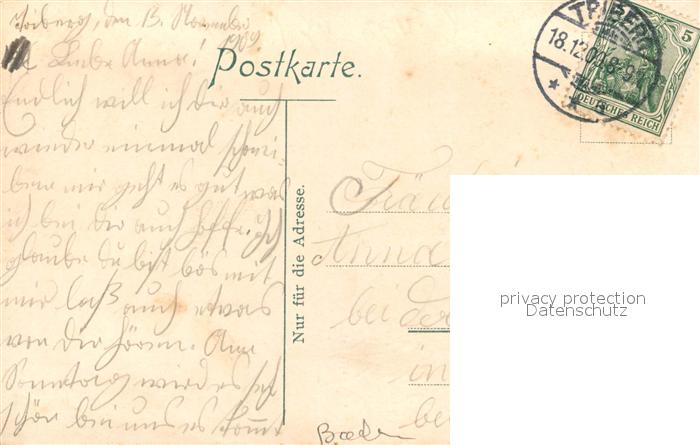 Triberg, den 13. November
1909.
Liebe Anna!
Endlich will ich dir auch
wieder einmal schrei-
ben mir geht es gut was
ich bei dir auch hoffe. Ich
glaube du bist bös mit
mir laß auch etwas
von dir hören. Am
Sonntag wird es sehr
schön bei uns es kommt
Postkarte.
Nur für die Adresse.
TRIBERG
18.12.09. 8-9
5
DEUTSCHES REICH
Fräu
Anna
bei der
in
be
Baden
privacy protection
Datenschutz